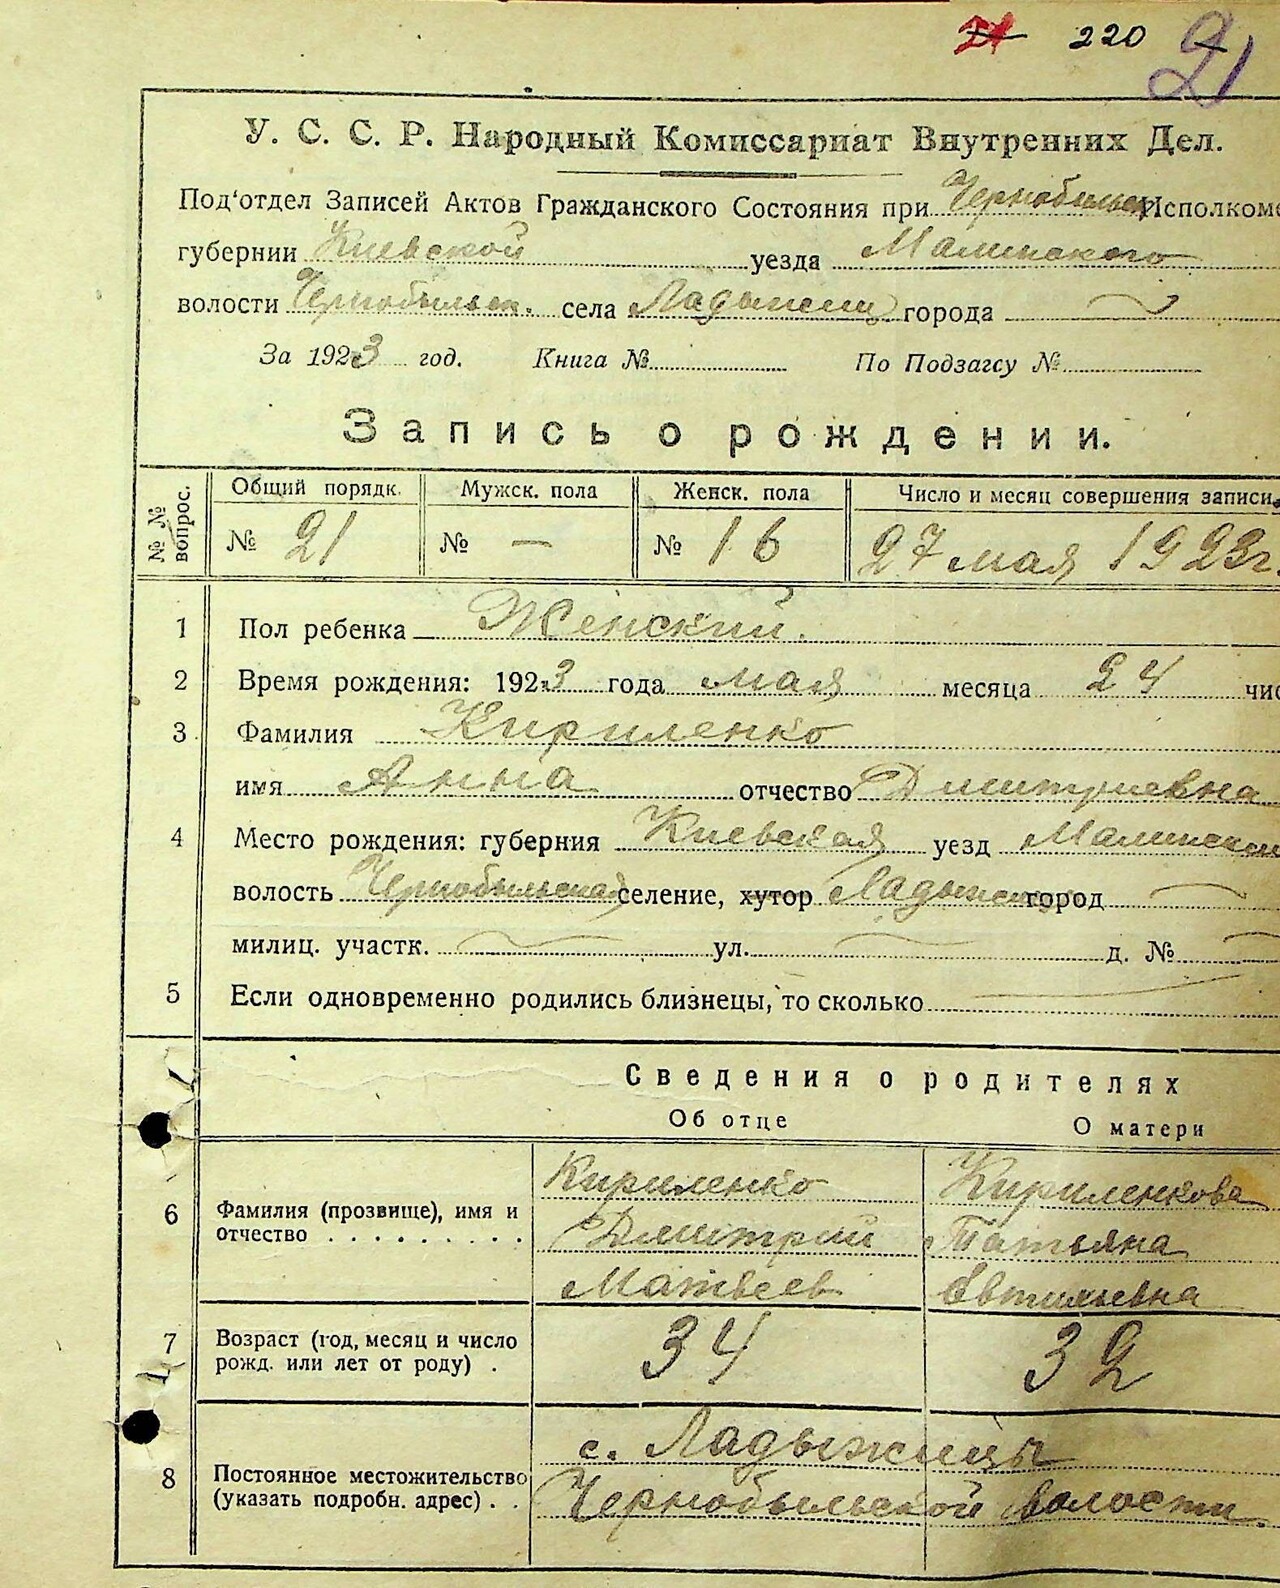 21 220 21
У. С. С. Р. Народный Комиссариат Внутренних Дел.
Под'отдел Записей Актов Гражданского Состояния при Чернобыльск Исполкоме
губернии Киевской уезда Малинского
волости Чернобыльск. села Ладыжичи города
За 1923 год. Книга № По Подзагсу №
Запись о рождении.
№ № вопрос. Общий порядк. Мужск. пола Женск. пола Число и месяц совершения записи.
№ 21 № — № 16 27 мая 1923 г.
1 Пол ребенка Женский.
2 Время рождения: 1923 года мая месяца 24 чис
3 Фамилия Кириленко
имя Анна отчество Дмитриевна
4 Место рождения: губерния Киевская уезд Малинский
волость Чернобыльская селение, хутор город
милиц. участк. ул. д. №
5 Если одновременно родились близнецы, то сколько
Сведения о родителях
Об отце О матери
6 Фамилия (прозвище), имя и отчество . . . . . . . . .
Кириленко Кириленкова
Дмитрий Татьяна
Матвеев
7 Возраст (год, месяц и число рожд. или лет от роду) . 34 32
8 Постоянное местожительство (указать подробн. адрес) . .
с. Ладыжицы
Чернобыльской волости.